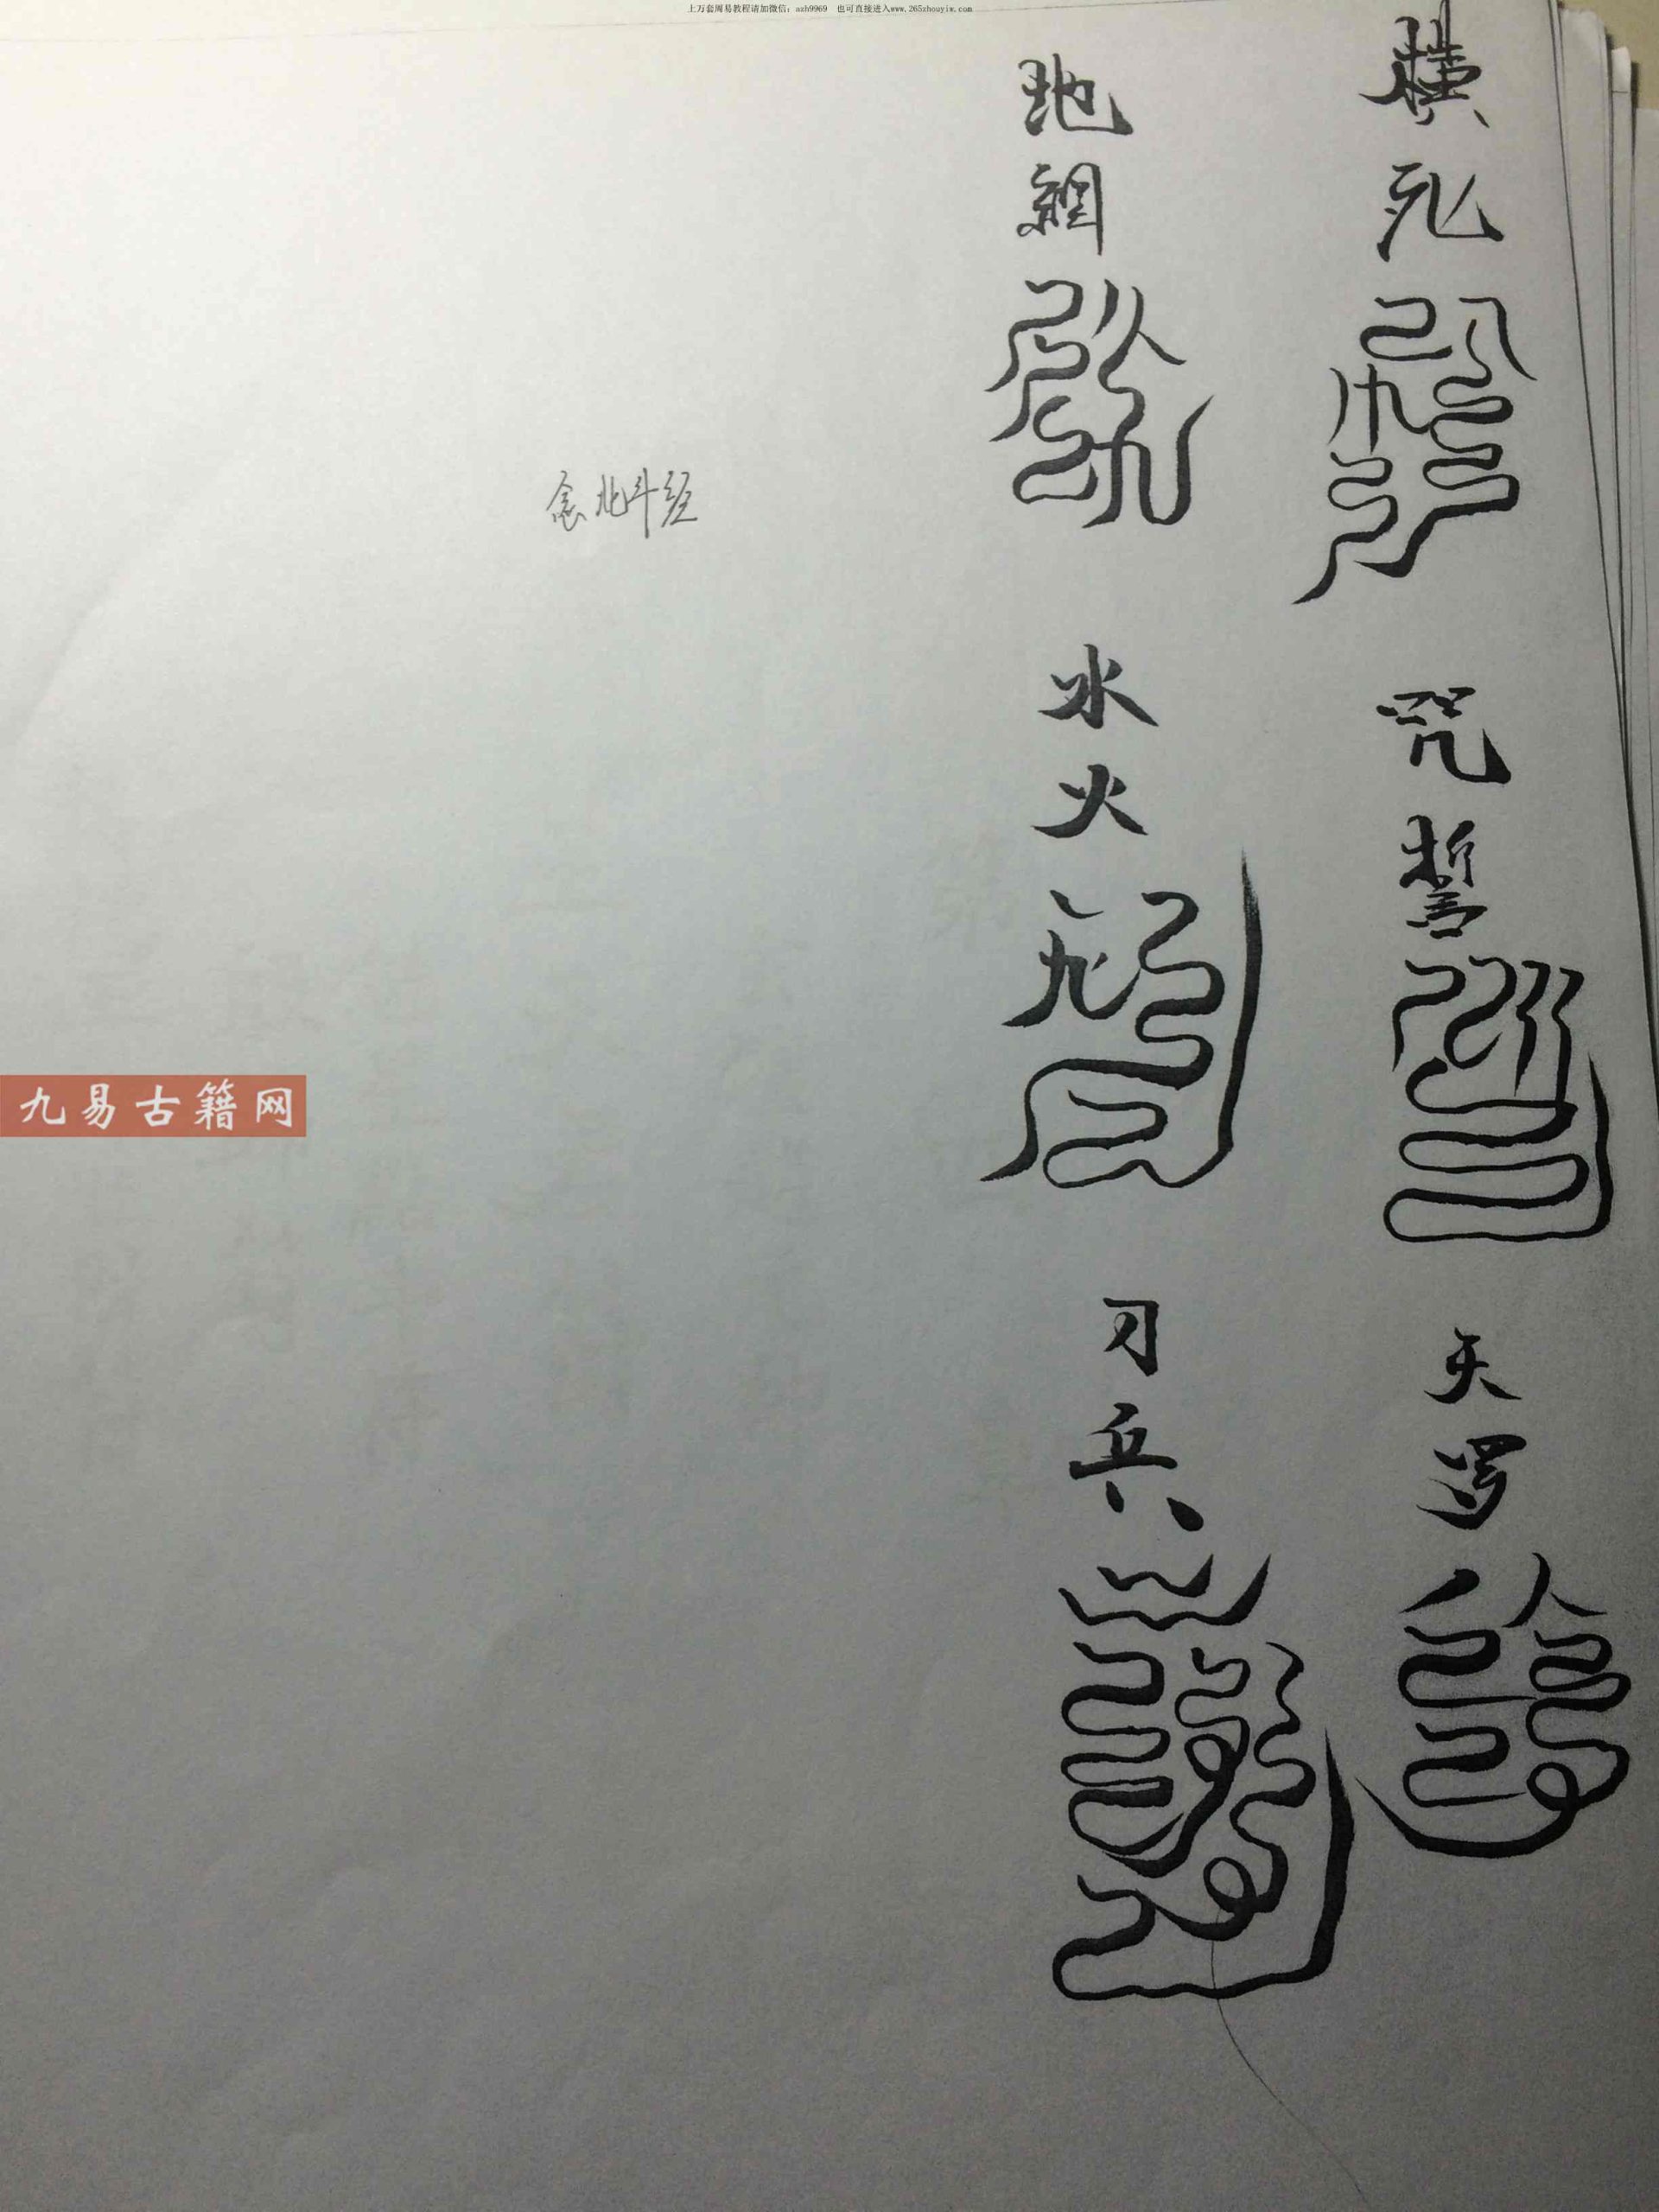 上万套周易教程请加微信：azh9969 也可直接进入www.265zhouyiw.com
横死
咒誓
天罗
地網
水火
刀兵
念北斗经
九易古籍网